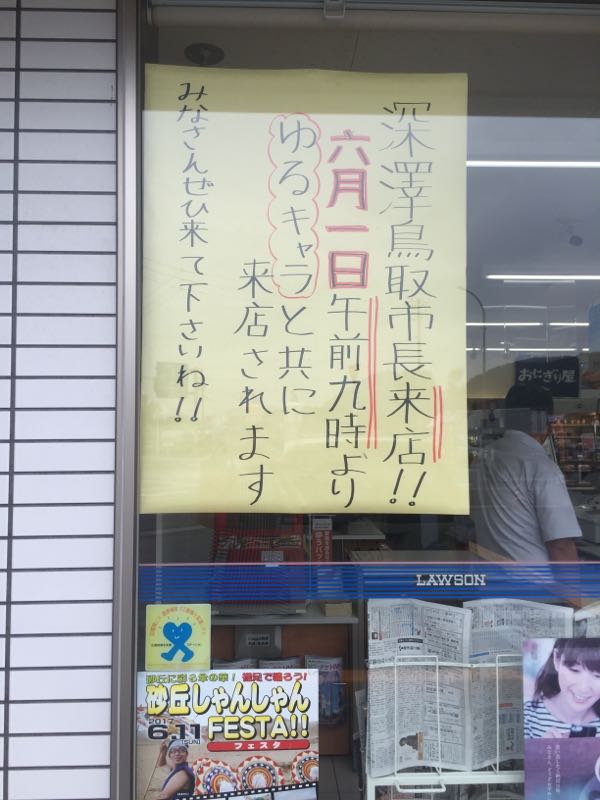 深澤鳥取市長来店!!
六月一日午前九時より
ゆるキャラと共に
来店されます
みなさんぜひ来て下さいね!!
おにぎり屋
LAWSON
砂丘に彩る傘の華! 裸足で踊ろう!
砂丘しゃんしゃん
2017
6.11
[SUN]
FESTA!!
フェスタ